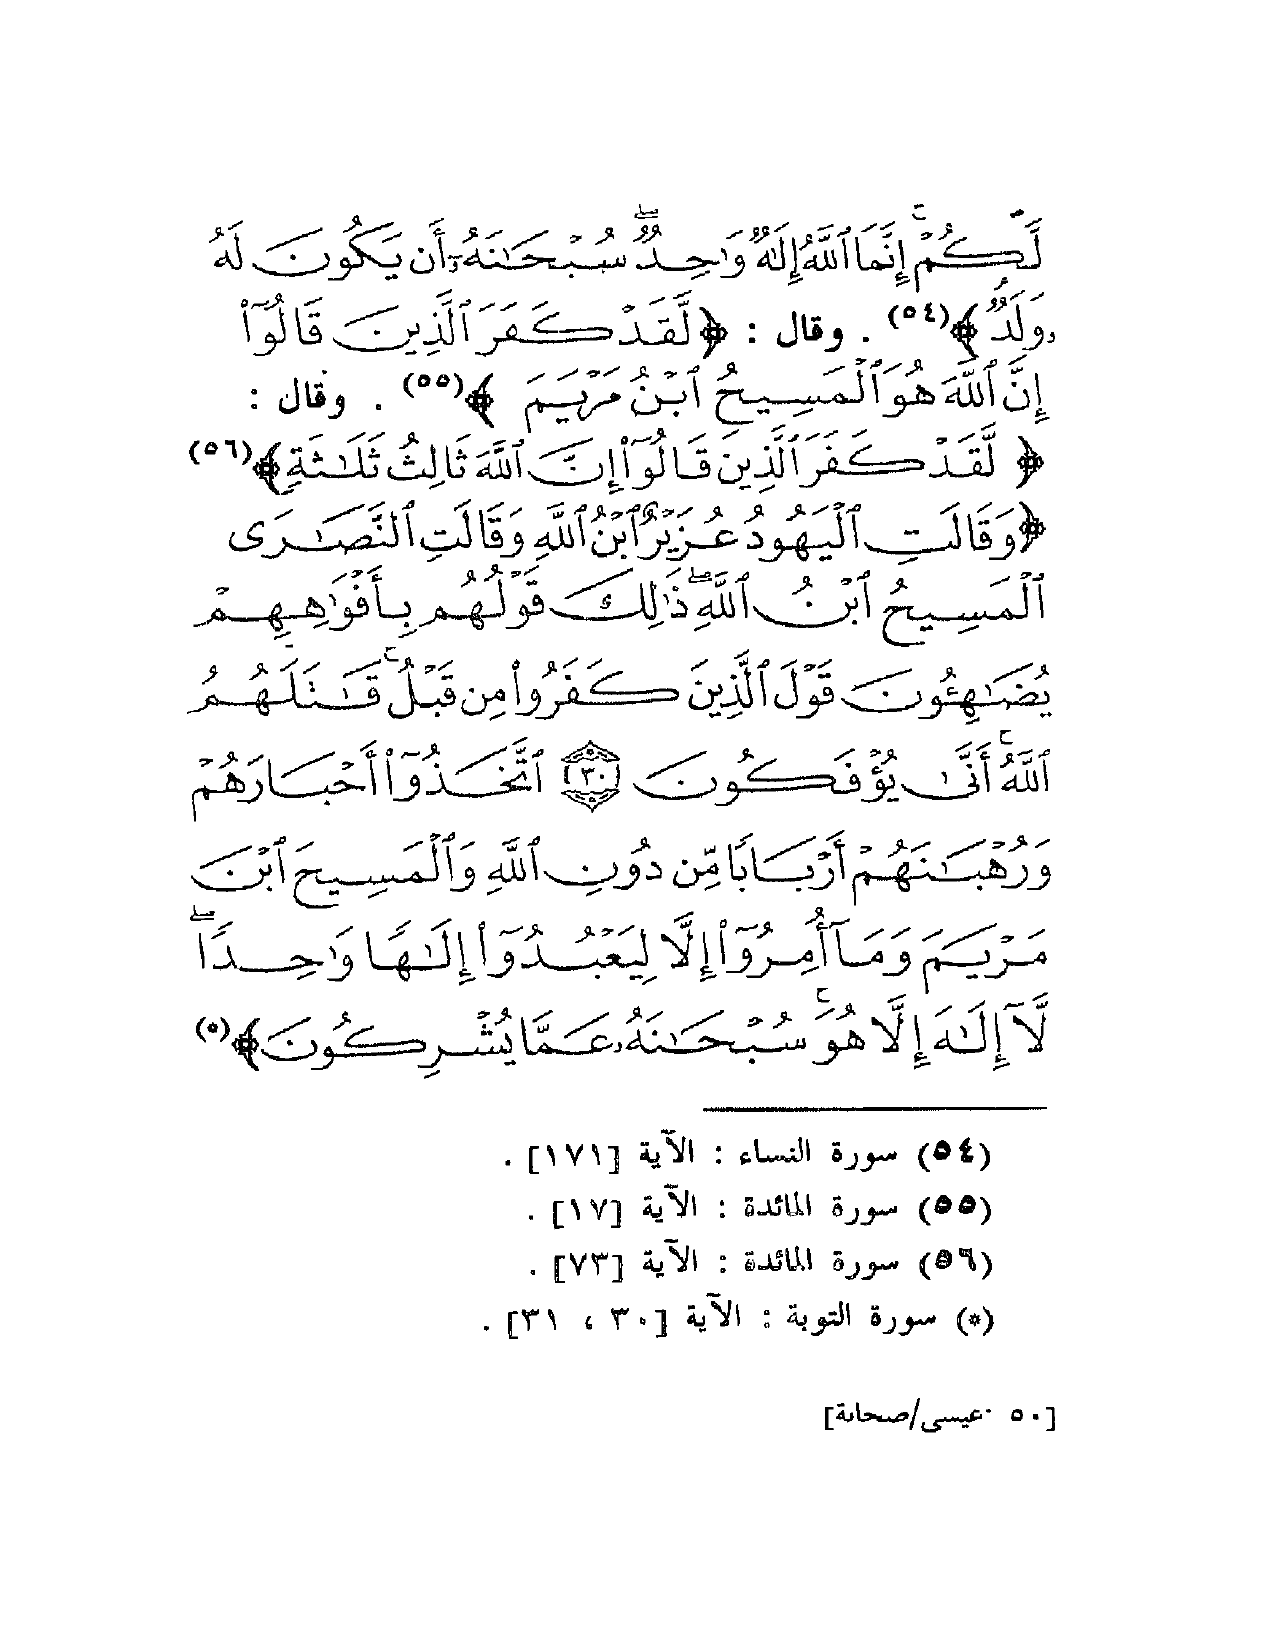 لَّكُمْ إِنَّمَا ٱللَّهُ إِلَٰهٌ وَٰحِدٌ سُبْحَٰنَهُۥٓ أَن يَكُونَ لَهُ
ۥوَلَدٌ ﴾(٥٤) . وقال : ﴿ لَّقَدْ كَفَرَ ٱلَّذِينَ قَالُوٓا۟
إِنَّ ٱللَّهَ هُوَ ٱلْمَسِيحُ ٱبْنُ مَرْيَمَ ﴾(٥٥) . وقال :
﴿ لَّقَدْ كَفَرَ ٱلَّذِينَ قَالُوٓا۟ إِنَّ ٱللَّهَ ثَالِثُ ثَلَٰثَةٍ ﴾(٥٦)
﴿ وَقَالَتِ ٱلْيَهُودُ عُزَيْرٌ ٱبْنُ ٱللَّهِ وَقَالَتِ ٱلنَّصَٰرَى
ٱلْمَسِيحُ ٱبْنُ ٱللَّهِ ۖ ذَٰلِكَ قَوْلُهُم بِأَفْوَٰهِهِمْ
يُضَٰهِـُٔونَ قَوْلَ ٱلَّذِينَ كَفَرُوا۟ مِن قَبْلُ ۚ قَٰتَلَهُمُ
ٱللَّهُ ۚ أَنَّىٰ يُؤْفَكُونَ [٣٠] ٱتَّخَذُوٓا۟ أَحْبَارَهُمْ
وَرُهْبَٰنَهُمْ أَرْبَابًا مِّن دُونِ ٱللَّهِ وَٱلْمَسِيحَ ٱبْنَ
مَرْيَمَ وَمَآ أُمِرُوٓا۟ إِلَّا لِيَعْبُدُوٓا۟ إِلَٰهًا وَٰحِدًا ۖ
لَّآ إِلَٰهَ إِلَّا هُوَ ۚ سُبْحَٰنَهُۥ عَمَّا يُشْرِكُونَ ﴾(*)
(٥٤) سورة النساء : الآية [١٧١] .
(٥٥) سورة المائدة : الآية [١٧] .
(٥٦) سورة المائدة : الآية [٧٣] .
(*) سورة التوبة : الآية [٣٠ ، ٣١] .
[٥٠ عيسى/صحابة]